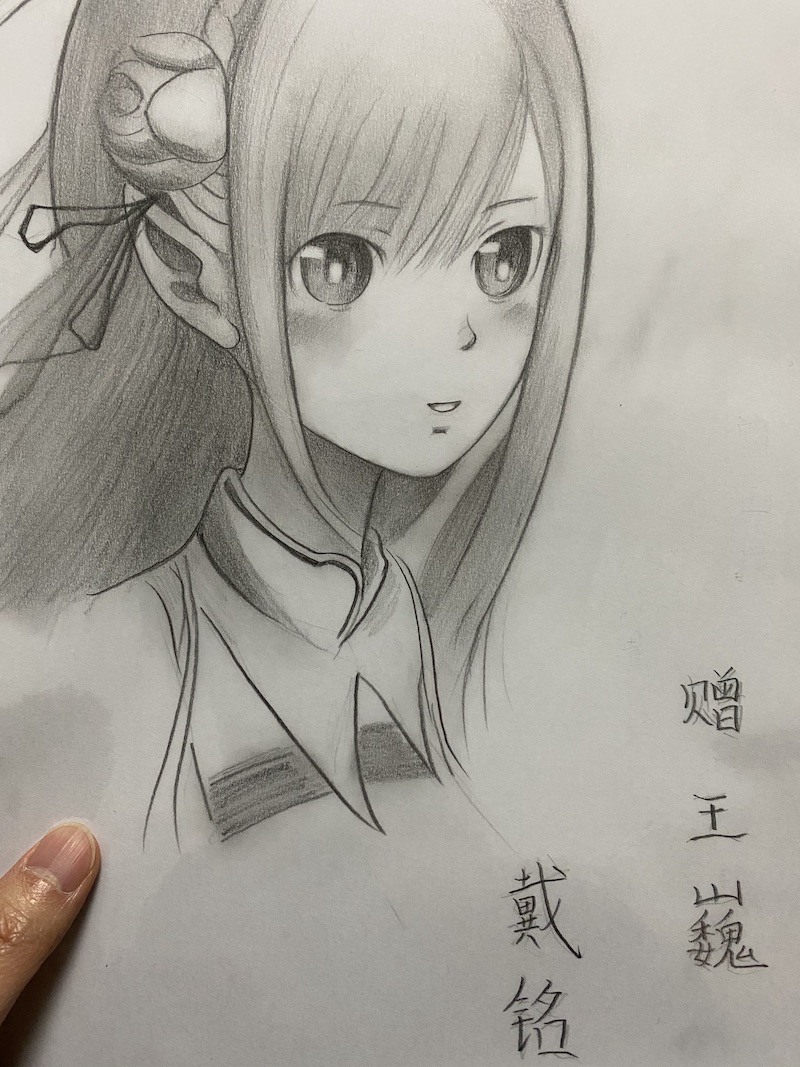 赠王巍
戴铭